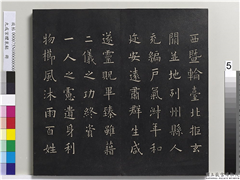 西暨輪臺北拒玄
闕並地列州縣人
充編戶氣淑年和
迩安遠肅群生咸
遂靈貺畢臻雖藉
二儀之功終資
一人之慮遺身利
物櫛風沐雨百姓
5